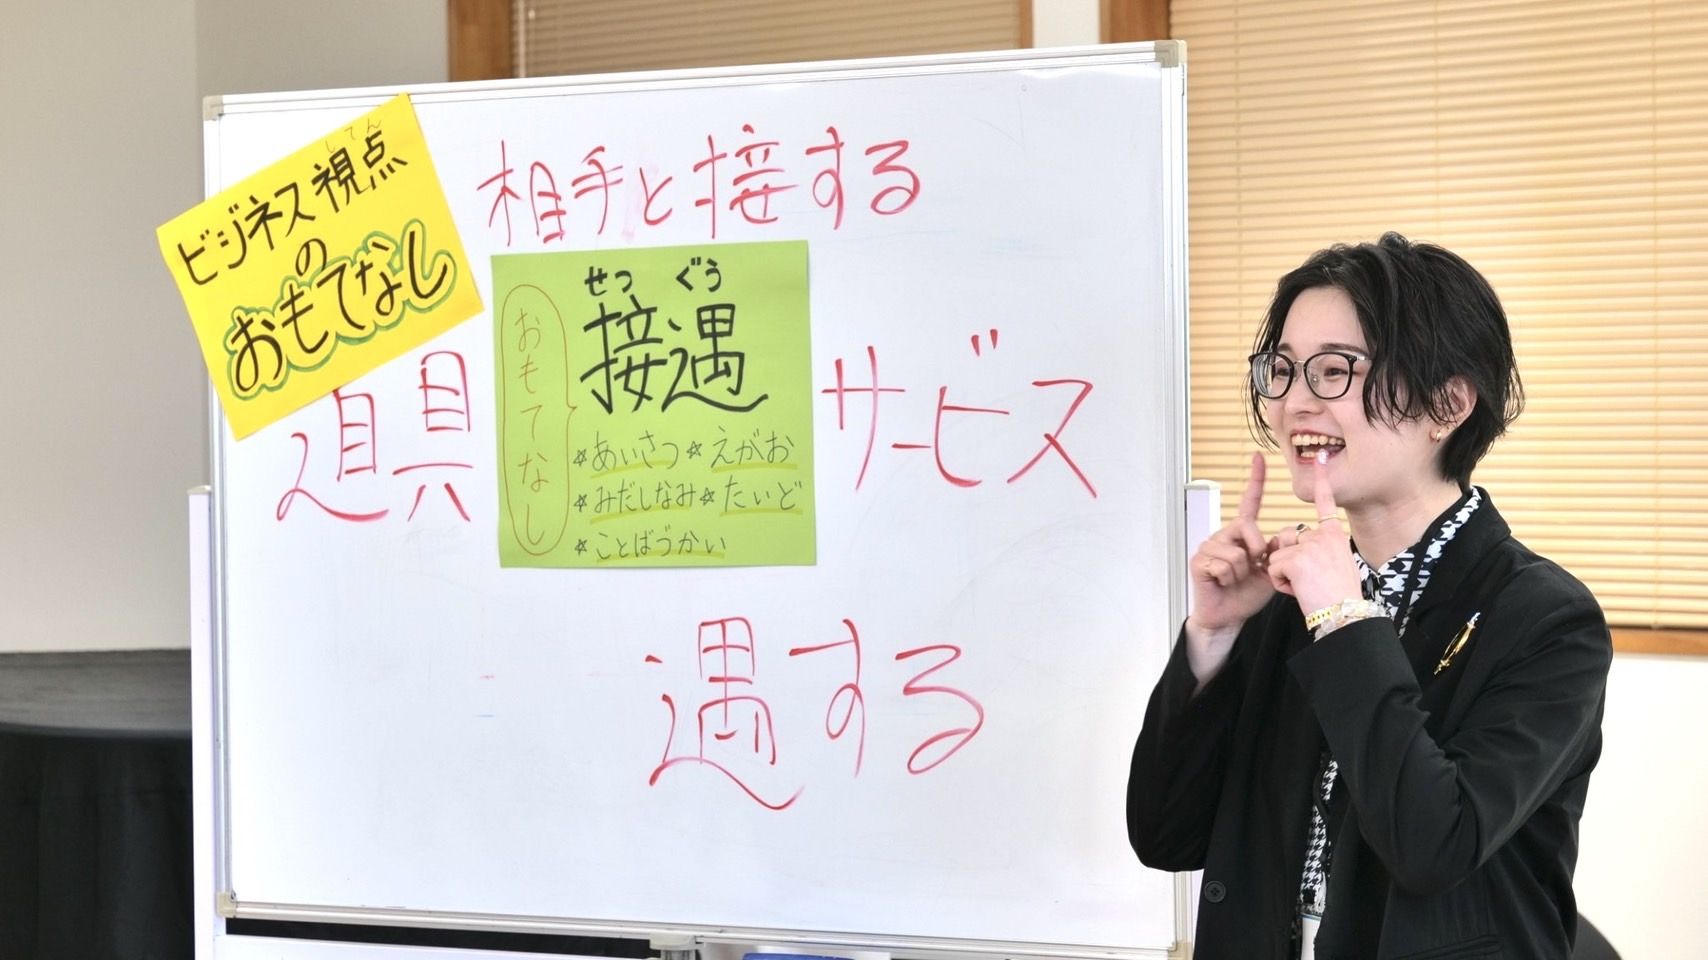 してん
ビジネス視点
の
おもてなし
相手と接する
せつ ぐう
接遇
おもてなし
☆あいさつ☆えがお
☆みだしなみ☆たいど
☆ことばづかい
道具
サービス
遇する